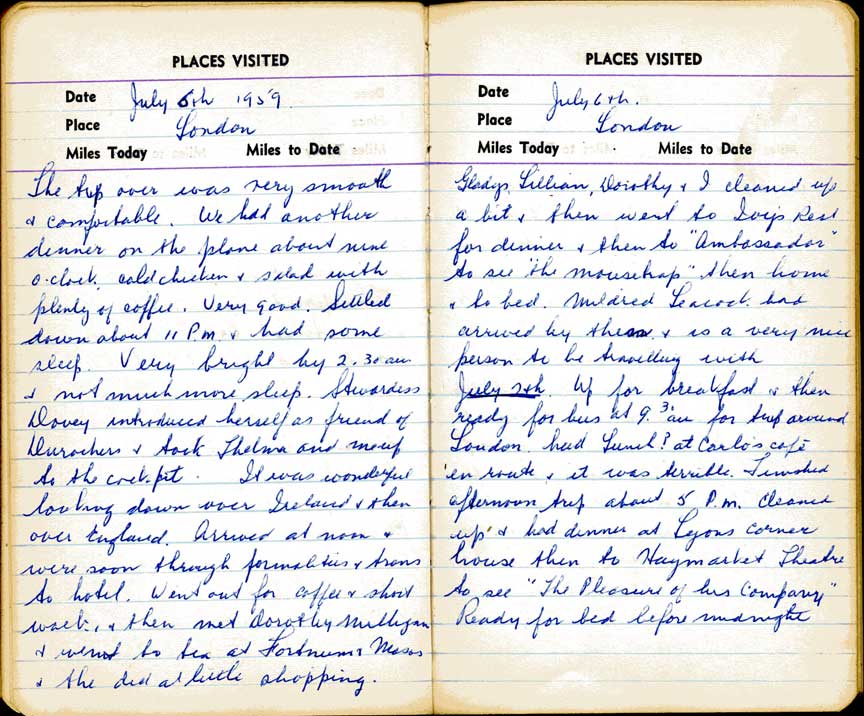 PLACES VISITED
Date July 6th 1959.
Place London
Miles Today Miles to Date
The trip over was very smooth
& comfortable. We had another
dinner on the plane about nine
o.clock. cold chicken & salad with
plenty of coffee. Very good. Settled
down about 11 P.m & had some
sleep. Very bright by 2.30 am
& not much more sleep. Stewardess
Dovey introduced herself as friend of
Durochers & took Thelma and me up
to the cock-pit. It was wonderful
looking down over Ireland & then
over England. Arrived at noon &
were soon through formalities & trans
to hotel. Went out for coffee & short
walk, & then met Dorothy Milligan
& went to tea at Fortnum & Mason
& the did a little shopping.
PLACES VISITED
Date July 6th.
Place London
Miles Today Miles to Date
Gladys, Lillian, Dorothy & I cleaned up
a bit & then went to Rest
for dinner & then to "Ambassador"
to see "the mousetrap" then home
& to bed. Mildred Leacock had
arrived by then & is a very nice
person to be travelling with
July 7th. Up for breakfast & then
ready for bus at 9.30 am for trip around
London. had Lunch? at Carlo's cafe
en route & it was terrible. Finished
afternoon trip about 5 P.m. Cleaned
up & had dinner at Lyons corner
house then to Haymarket Theatre
to see "The Pleasure of his Company"
Ready for bed before midnight